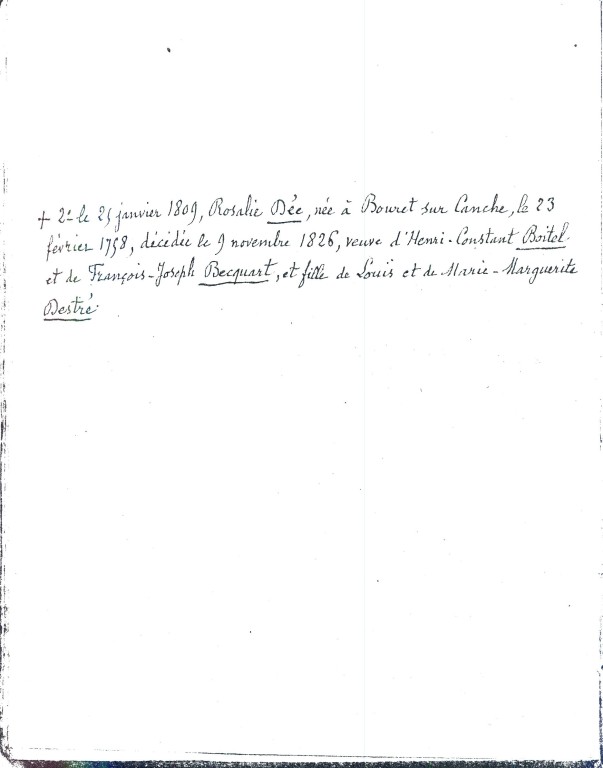 + 2º le 25 janvier 1809, Rosalie Dée, née à Bouret sur Canche, le 23
février 1758, décédée le 9 novembre 1826, veuve d'Henri-Constant Boitel
et de François-Joseph Becquart, et fille de Louis et de Marie-Marguerite
Destré.